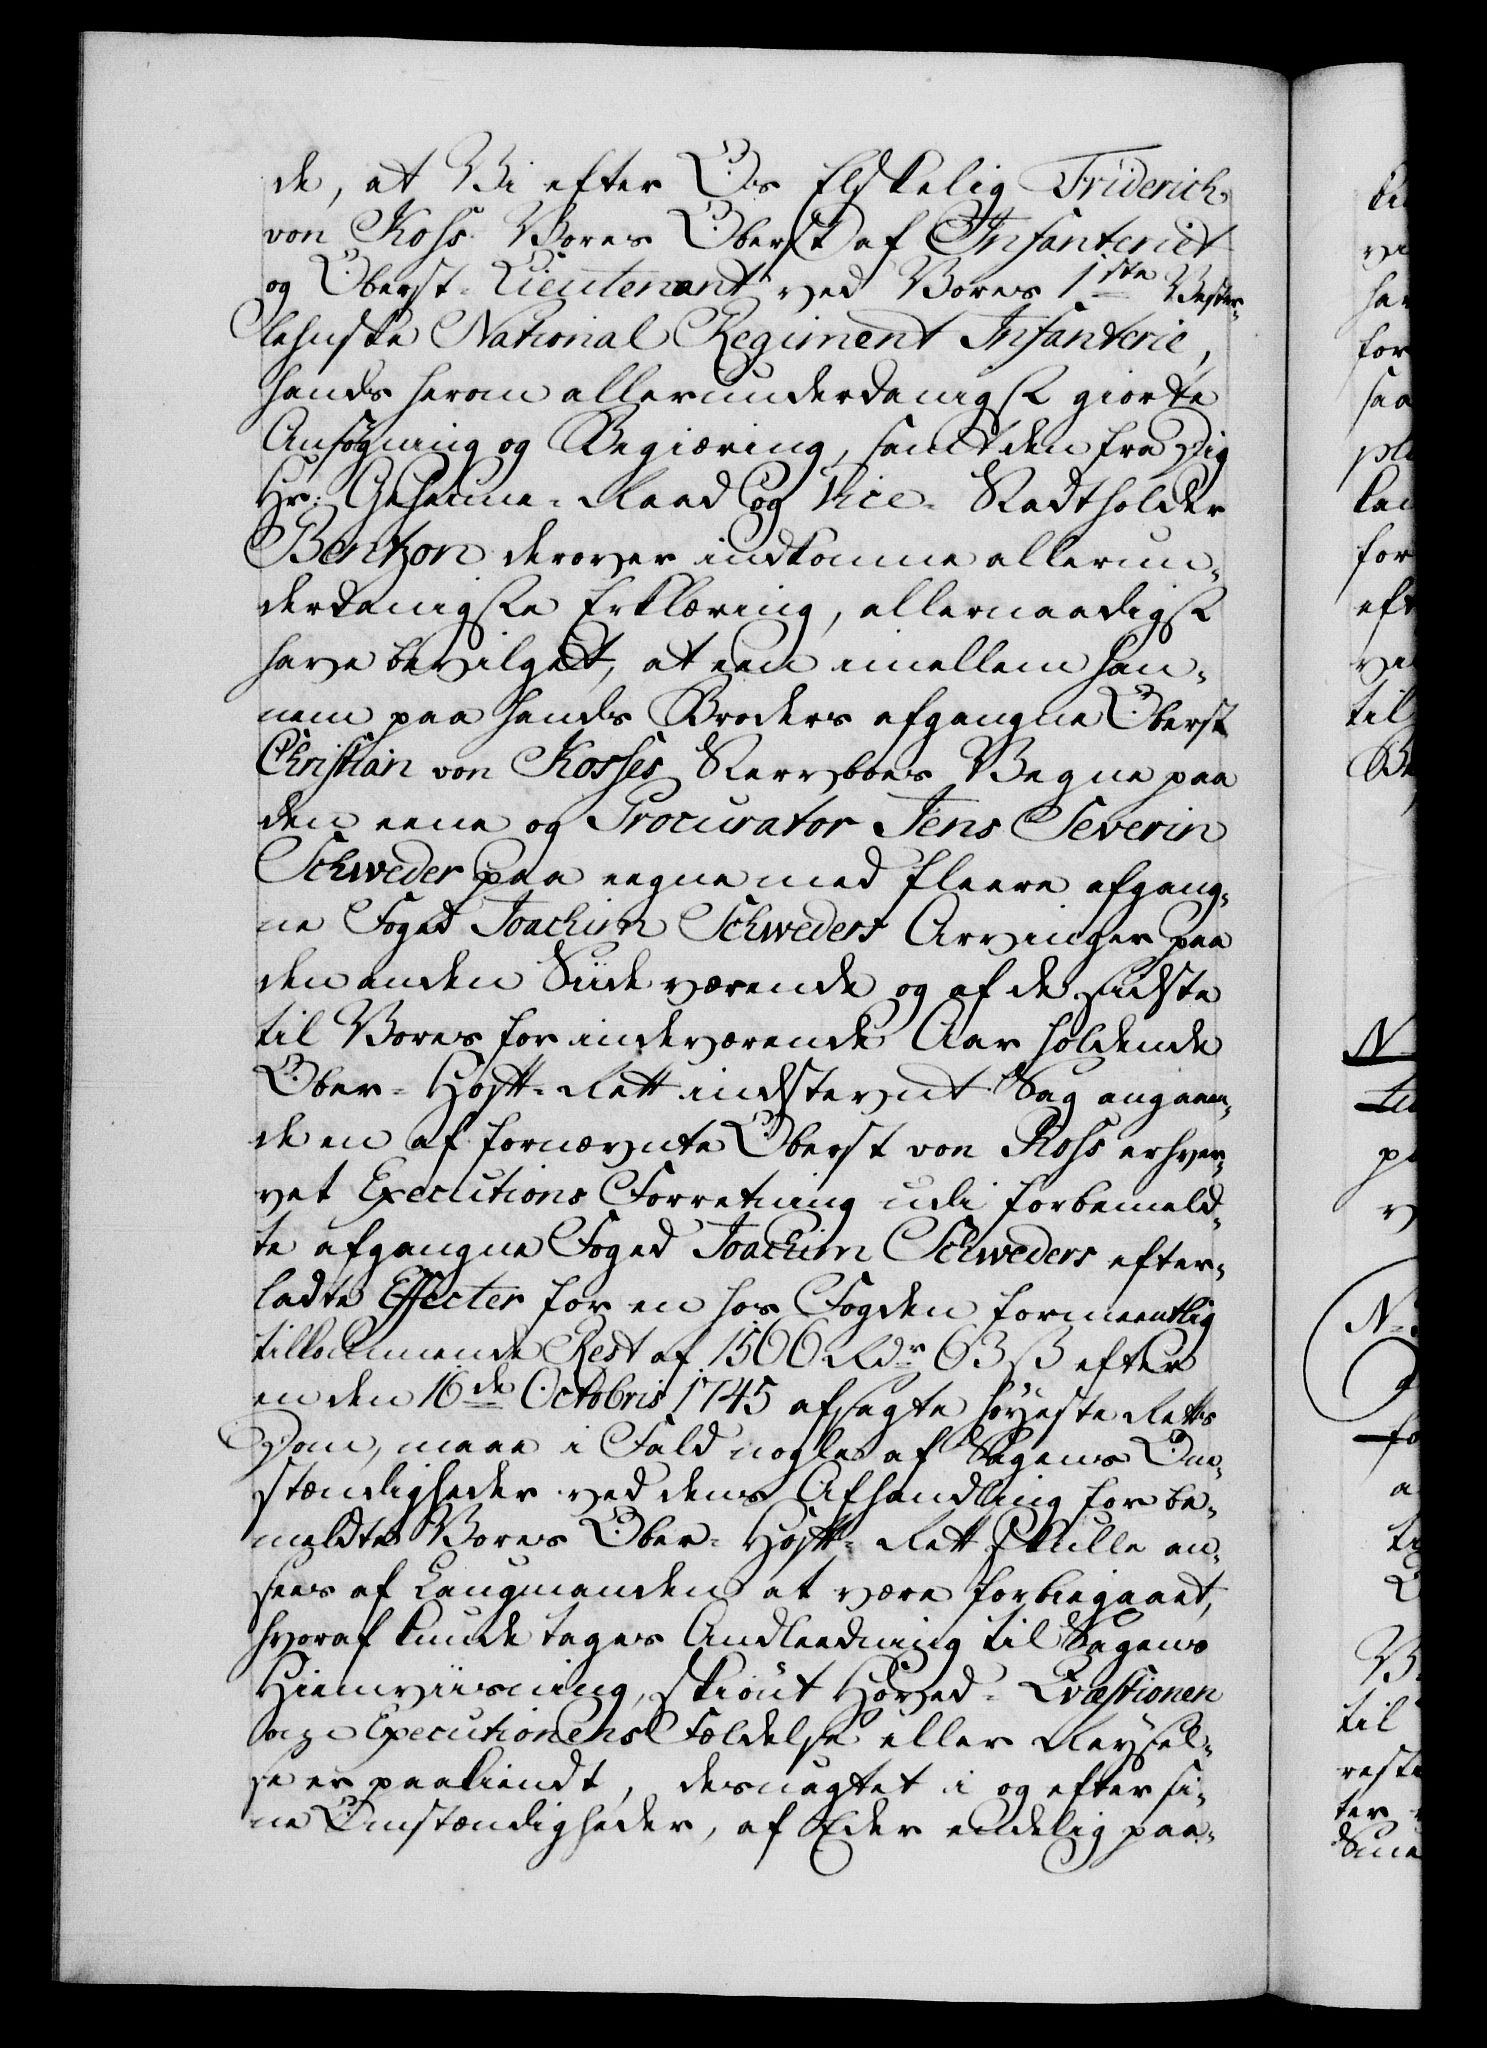 de, at Vi efter Os Elskelig Friderich
von Koss Vores Oberst af Infanteriet
og Oberst-Lieutenant ved Vores 1ste Vester-
lehnske National Regiment Infanterie,
hands herom allerunderdanigst giorte
Ansøgning og Begiæring, samt den fra Dig
Hr: Geheime-Raad og Vice-Stadtholder
Bentzon derover indkomne allerun-
derdanigste Erklæring, allernaadigst
have bevilget, at een imellem han-
nem paa hands Broders afgangne Oberst
Christian von Kosses Sterrvboes Vegne paa
den eene og Procurator Jens Severin
Schweder paa eegne med fleere afgang-
ne Foged Joachim Schweders Arvinger paa
den anden Siide værende og af de sidste
til Vores for indeværende Aar holdende
Ober-Hoff-Rett indstevnt Sag angaaen-
de en af fornævnte Oberst von Koss erhver-
vet Executions Forretning udi forbemeld-
te afgangne Foged Joachim Schweders efter-
ladte Effecter for en hos Fogden formeentlig
tilkommende Rest af 1566 Rdr 63 ß efter
en den 16de Octobris 1745 afsagte høyeste Retts
Dom, maae i Fald nogle af Sagens Om-
stændigheder ved dens Afhandling for be-
meldte Vores Ober-Hoff-Rett skulle an-
sees af Laugmanden at være forbiegaaet,
hvoraf kunde tages Andleedning til Sagens
Hiemviisning, skiønt Hoved-Qvæstionen
om Executionens Fældelse eller Reysel-
se er paakiendt, desuagtet i og efter si-
ne Omstændigheder, af Eder endelig paa-